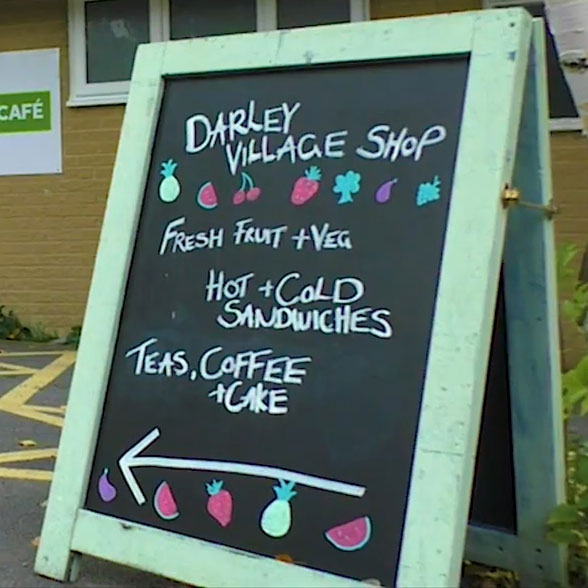 CAFÉ
DARLEY
VILLAGE SHOP
FRESH FRUIT + VEG
HOT + COLD
SANDWICHES
TEAS, COFFEE
+ CAKE